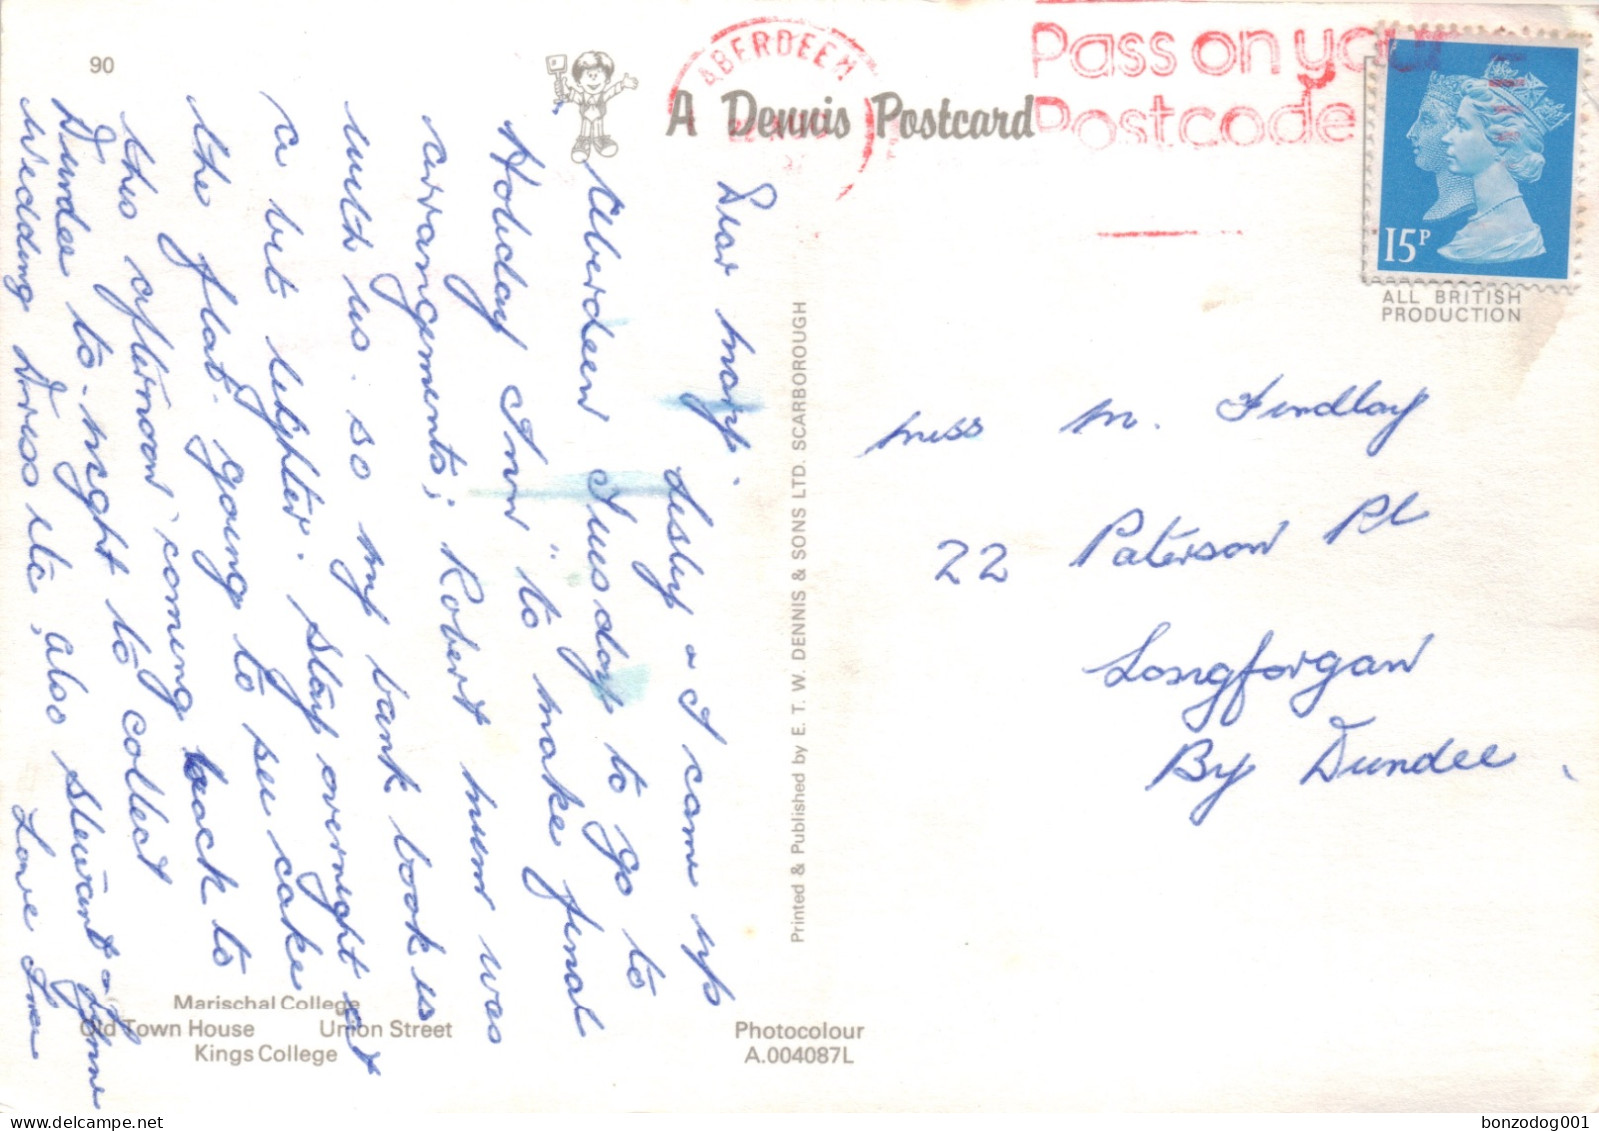 90
A Dennis Postcard
ABERDEEN
Pass on your
Postcode
15P
ALL BRITISH
PRODUCTION
Dear Mary.
Lesley & I came up
Aberdeen Tuesday to go to
Holiday Inn" to make final
arrangements; Robert mum was
with us. so my bank book is
a bit lighter. Stay overnight at
the flat. going to see cake
this afternoon coming back to
Dundee to-night to collect
Wedding Dress etc, also Stewart &
Love
Miss M. Findlay
22 Paterson Pl
Longforgan
By Dundee.
Printed & Published by E. T. W. DENNIS & SONS LTD. SCARBOROUGH
Marischal College
Old Town House Union Street
Kings College
Photocolour
A.004087L
bonzodog001